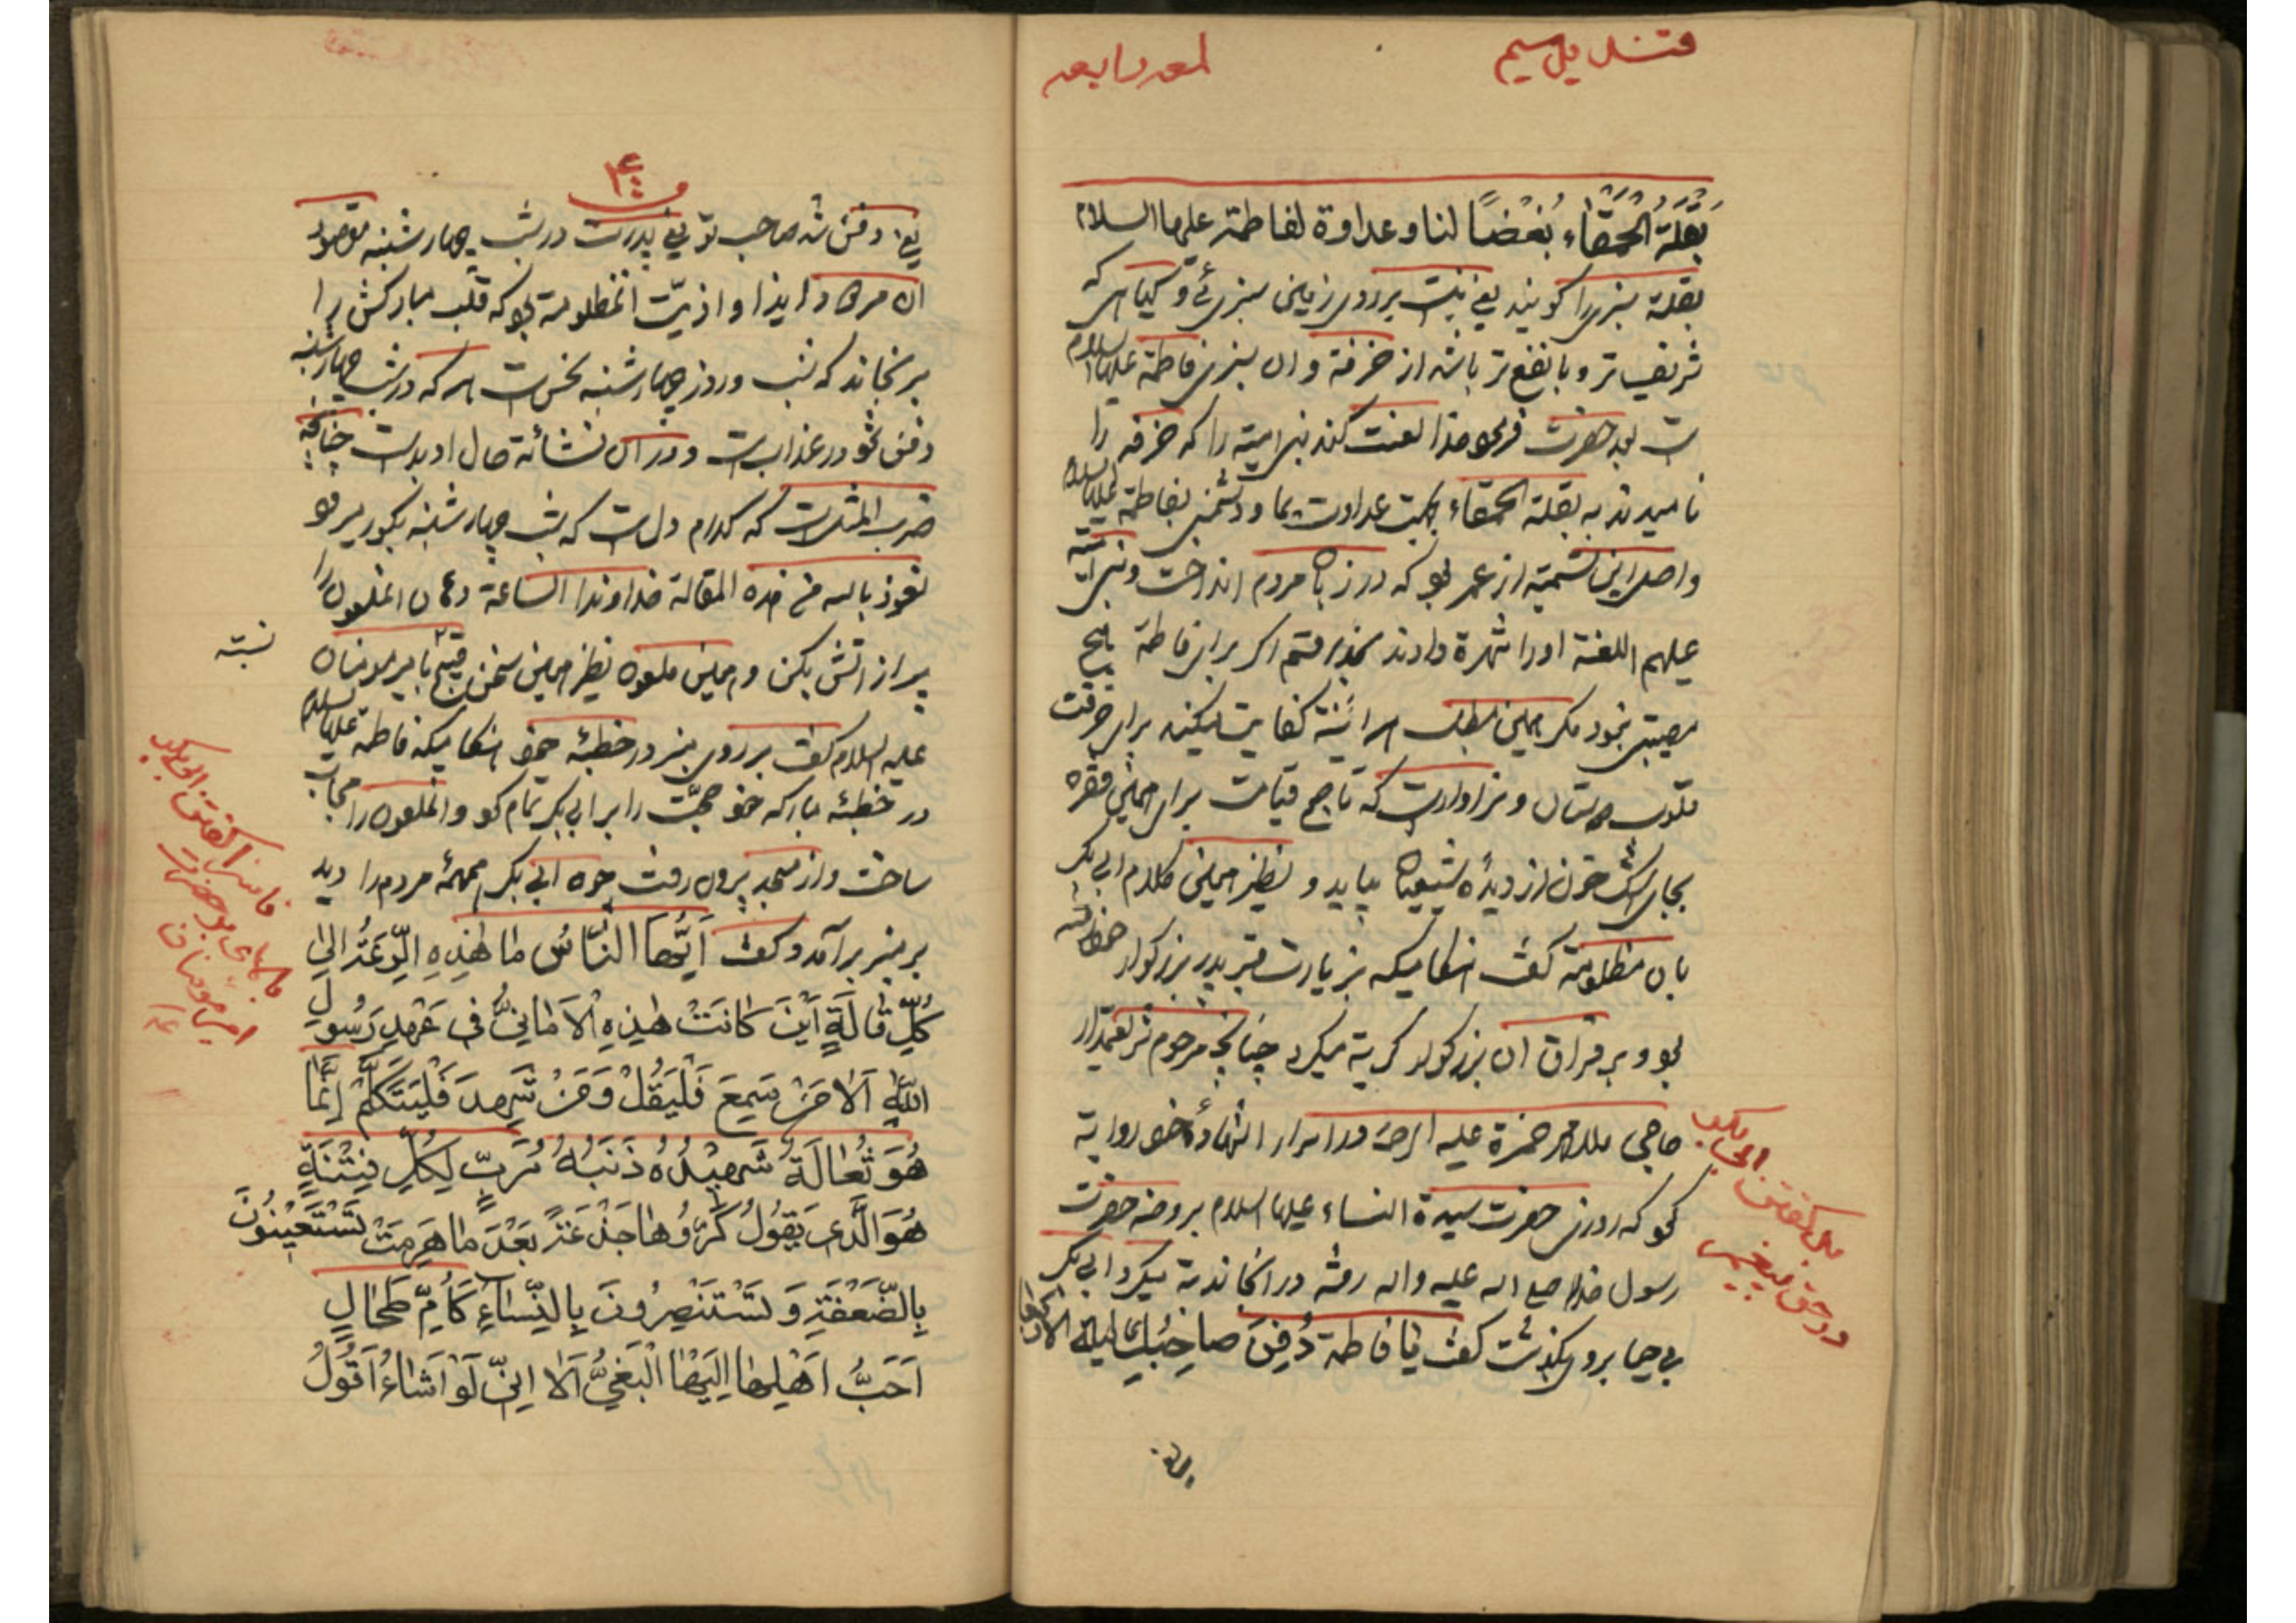 قندیل سیم
لمعه رابعه
بَقْلَةُ الحُمَقٰاء بُغْضًا لنا وعداوة لفاطمة علیها السلام
بقلة سبزی را کویند یعنی نیست بر روی زمین سبزی و کیاهی که
شریف تر و با نفع تر باشد از خرفة و ان سبزی فاطمة علیها السلام
است بعد حضرت فرمود خدا لعنت کند بنی امیة را که خرفه را
نامیدند به بقلة الحمقاء بجهت عداوت بما و دشمنی بفاطمة علیها السلام
واصل این تسمیة از عمر بود که در زبان مردم انداخت و بنی امیه
علیهم اللعنة اورا شهرة دادند بخدا قسم اکر برای فاطمة هیچ
مصیبتی نبود مکر همین مطلب هر اینة کفایت میکند برای حرقت
قلوب دوستان و سزاوار است که تا صبح قیامت برای همین فقره
بجای اشک خون از دیدۀ شیعیان بیاید و نظیر همین کلام ابی بکر
بان مظلومة کفت هنکامیکه بزیارت قبر پدر بزرکوار خود رفته
بود و بر فراق ان بزرکوار کریة میکرد چنانچه مرحوم شریعتمدار
حاجی ملا محمد حمزة علیه الرحمة در اسرار الشهادۀ خود روایة
نمود که روزی حضرت سیدة النساء علیها السلام بروضه حضرت
رسول خدا صلی الله علیه واله رفته در انجا ندبة میکرد ابی بکر
بی حیا بروی بکذشت کفت یٰا فاطمة دُفِنَ صاحِبُكِ لیلة الاربعاء
دل سفتن ابی بکر
در حق پیغمبر
یعنی
یعنی دفن شد صاحب تو یعنی پدرت در شب چهارشنبه مقصود
ان مردک ایذا و اذیّت انمظلومة بود که قلب مبارکش را
برنجاند که شب و روز چهارشنبه نحس است هر که در شب چهارشنبه
دفن شود در عذاب است و در ان نشائة حال او بد است چنانچه
ضرب المثل است که کدام دل است که شب چهارشنبه بکور میرود
نعوذ بالله من هذه المقالة خداوندا الساعة دهان انملعون را
پر از اتش بکن و همین ملعون نظیر همین سخن قبیح با امیر مومنان
نسبته
علیه السلام کفت بر روی منبر در خطبۀ خود هنکامیکه فاطمة علیها السلام
در خطبۀ مبارکه خود حجّت را بر ابی بکر تمام کرد و انملعون را مجاب
ساخت و از مسجد بیرون رفت چون ابی بکر همهمۀ مردم را دید
بر منبر برآمد و کفت اَیُّهَا النّٰاسُ مٰا هٰذِهِ الرِّعَةُ اِلیٰ
كُلِّ قٰالَةٍ اَیْنَ كٰانَتْ هٰذِهِ الْاَمٰانِیُّ فی عَهْدِ رَسُولِ
اللّٰهِ اَلاٰ مَنْ سَمِعَ فَلْیَقُلْ وَمَنْ شَهِدَ فَلْیَتَكَلَّمْ اِنَّمٰا
هُوَ ثُعٰالَةٌ شَهِیْدُهُ ذَنَبُهُ مُرَبٍّ لِكُلِّ فِتْنَةٍ
هُوَ الَّذی یَقُولُ كَرُّوهٰا جَذَعَةً بَعْدَ مٰا هَرِمَتْ تَسْتَعِیْنُوْنَ
بِالضَّعَفَةِ وَ تَسْتَنْصِرُونَ بِالنِّسٰاءِ كَاُمِّ طِحٰالٍ
اَحَبُّ اَهْلِهٰا اِلَیْهٰا الْبَغِیُّ اَلاٰ اِنّی لَوْ اَشٰاءُ اَقُوْلُ
ناسزا کفتن ابی بکر
امیر مؤمنان